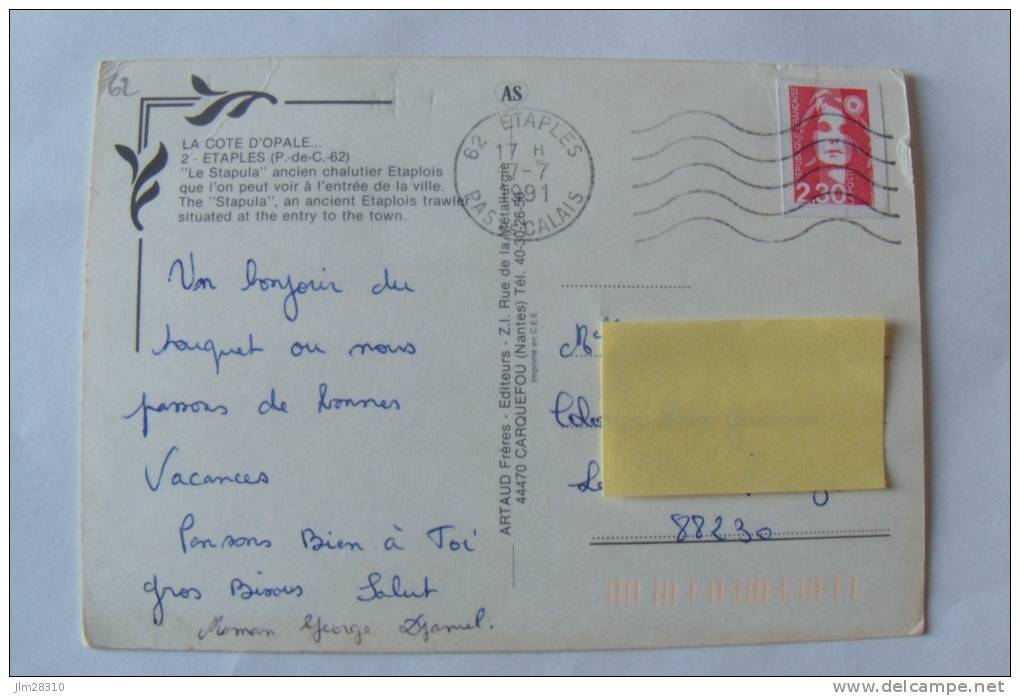 62
AS
LA COTE D'OPALE...
2 - ETAPLES (P.-de-C.-62)
"Le Stapula" ancien chalutier Etaplois
que l'on peut voir à l'entrée de la ville.
The "Stapula", an ancient Etaplois trawler
situated at the entry to the town.
62 ETAPLES
17 H
7-7
1991
PAS CALAIS
REPUBLIQUE FRANCAISE
2.30
POSTE
Un bonjour du
touquet ou nous
passons de bonnes
Vacances
Pensons Bien à Toi
gros Bisous Salut
Maman George Djamel.
ARTAUD Frères - Editeurs - Z.I. Rue de la Métallurgie
44470 CARQUEFOU (Nantes) Tél. 40-30-26-56
Imprimé en C.E.E.
Mlle
Le
88230
jlm28310
www.delcampe.net